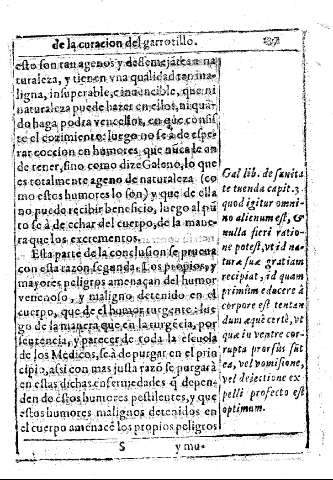 de la curacion del garrotillo.
esto son tan agenos y desemejātes a na
turaleza, y tienen vna qualidad tan ma-
ligna, insuperable, e inuencible, que ni
naturaleza puede hazer en ellos, ni quā-
do haga podra vencellos, en que consis
te el cozimiento: luego no se à de espe-
rar coccion en humores, que nūca le on
de tener, sino como dize Galeno, lo que
es totalmente ageno de naturaleza (co
mo estos humores lo son) y que de ella
no puede recibir beneficio, luego al pū
to se à de echar del cuerpo, de la mane-
ra que los excrementos.
Esta parte de la conclusion se prueua
con esta razon segunda. Los propios, y
mayores peligros amenaçan del humor
venenoso, y maligno detenido en el
cuerpo, que de el humor turgente: lue
go de la manera que en la turgecia, por
sentencia, y parecer de toda la escuela
de los Medicos, se à de purgar en el prin
cipio, assi con mas justa razō se purgarà
en estas dichas enfermedades q̄ depen-
den de estos humores pestilentes, y que
estos humores malignos detenidos en
el cuerpo amenacē los propios peligros
S y mu-
Gal lib. de sanita
te tuenda capit. 3.
quod igitur omni-
no alienum est, &
nulla fieri ratio-
ne potest, vt id na-
turæ suæ gratiam
recipiat, id quam
primùm educere à
corpore est tentan
dum æquè certè, vt
quæ in ventre cor-
rupta prorsùs sūt
ea, vel vomitione,
vel deiectione ex
pelli profecto est
optimum.